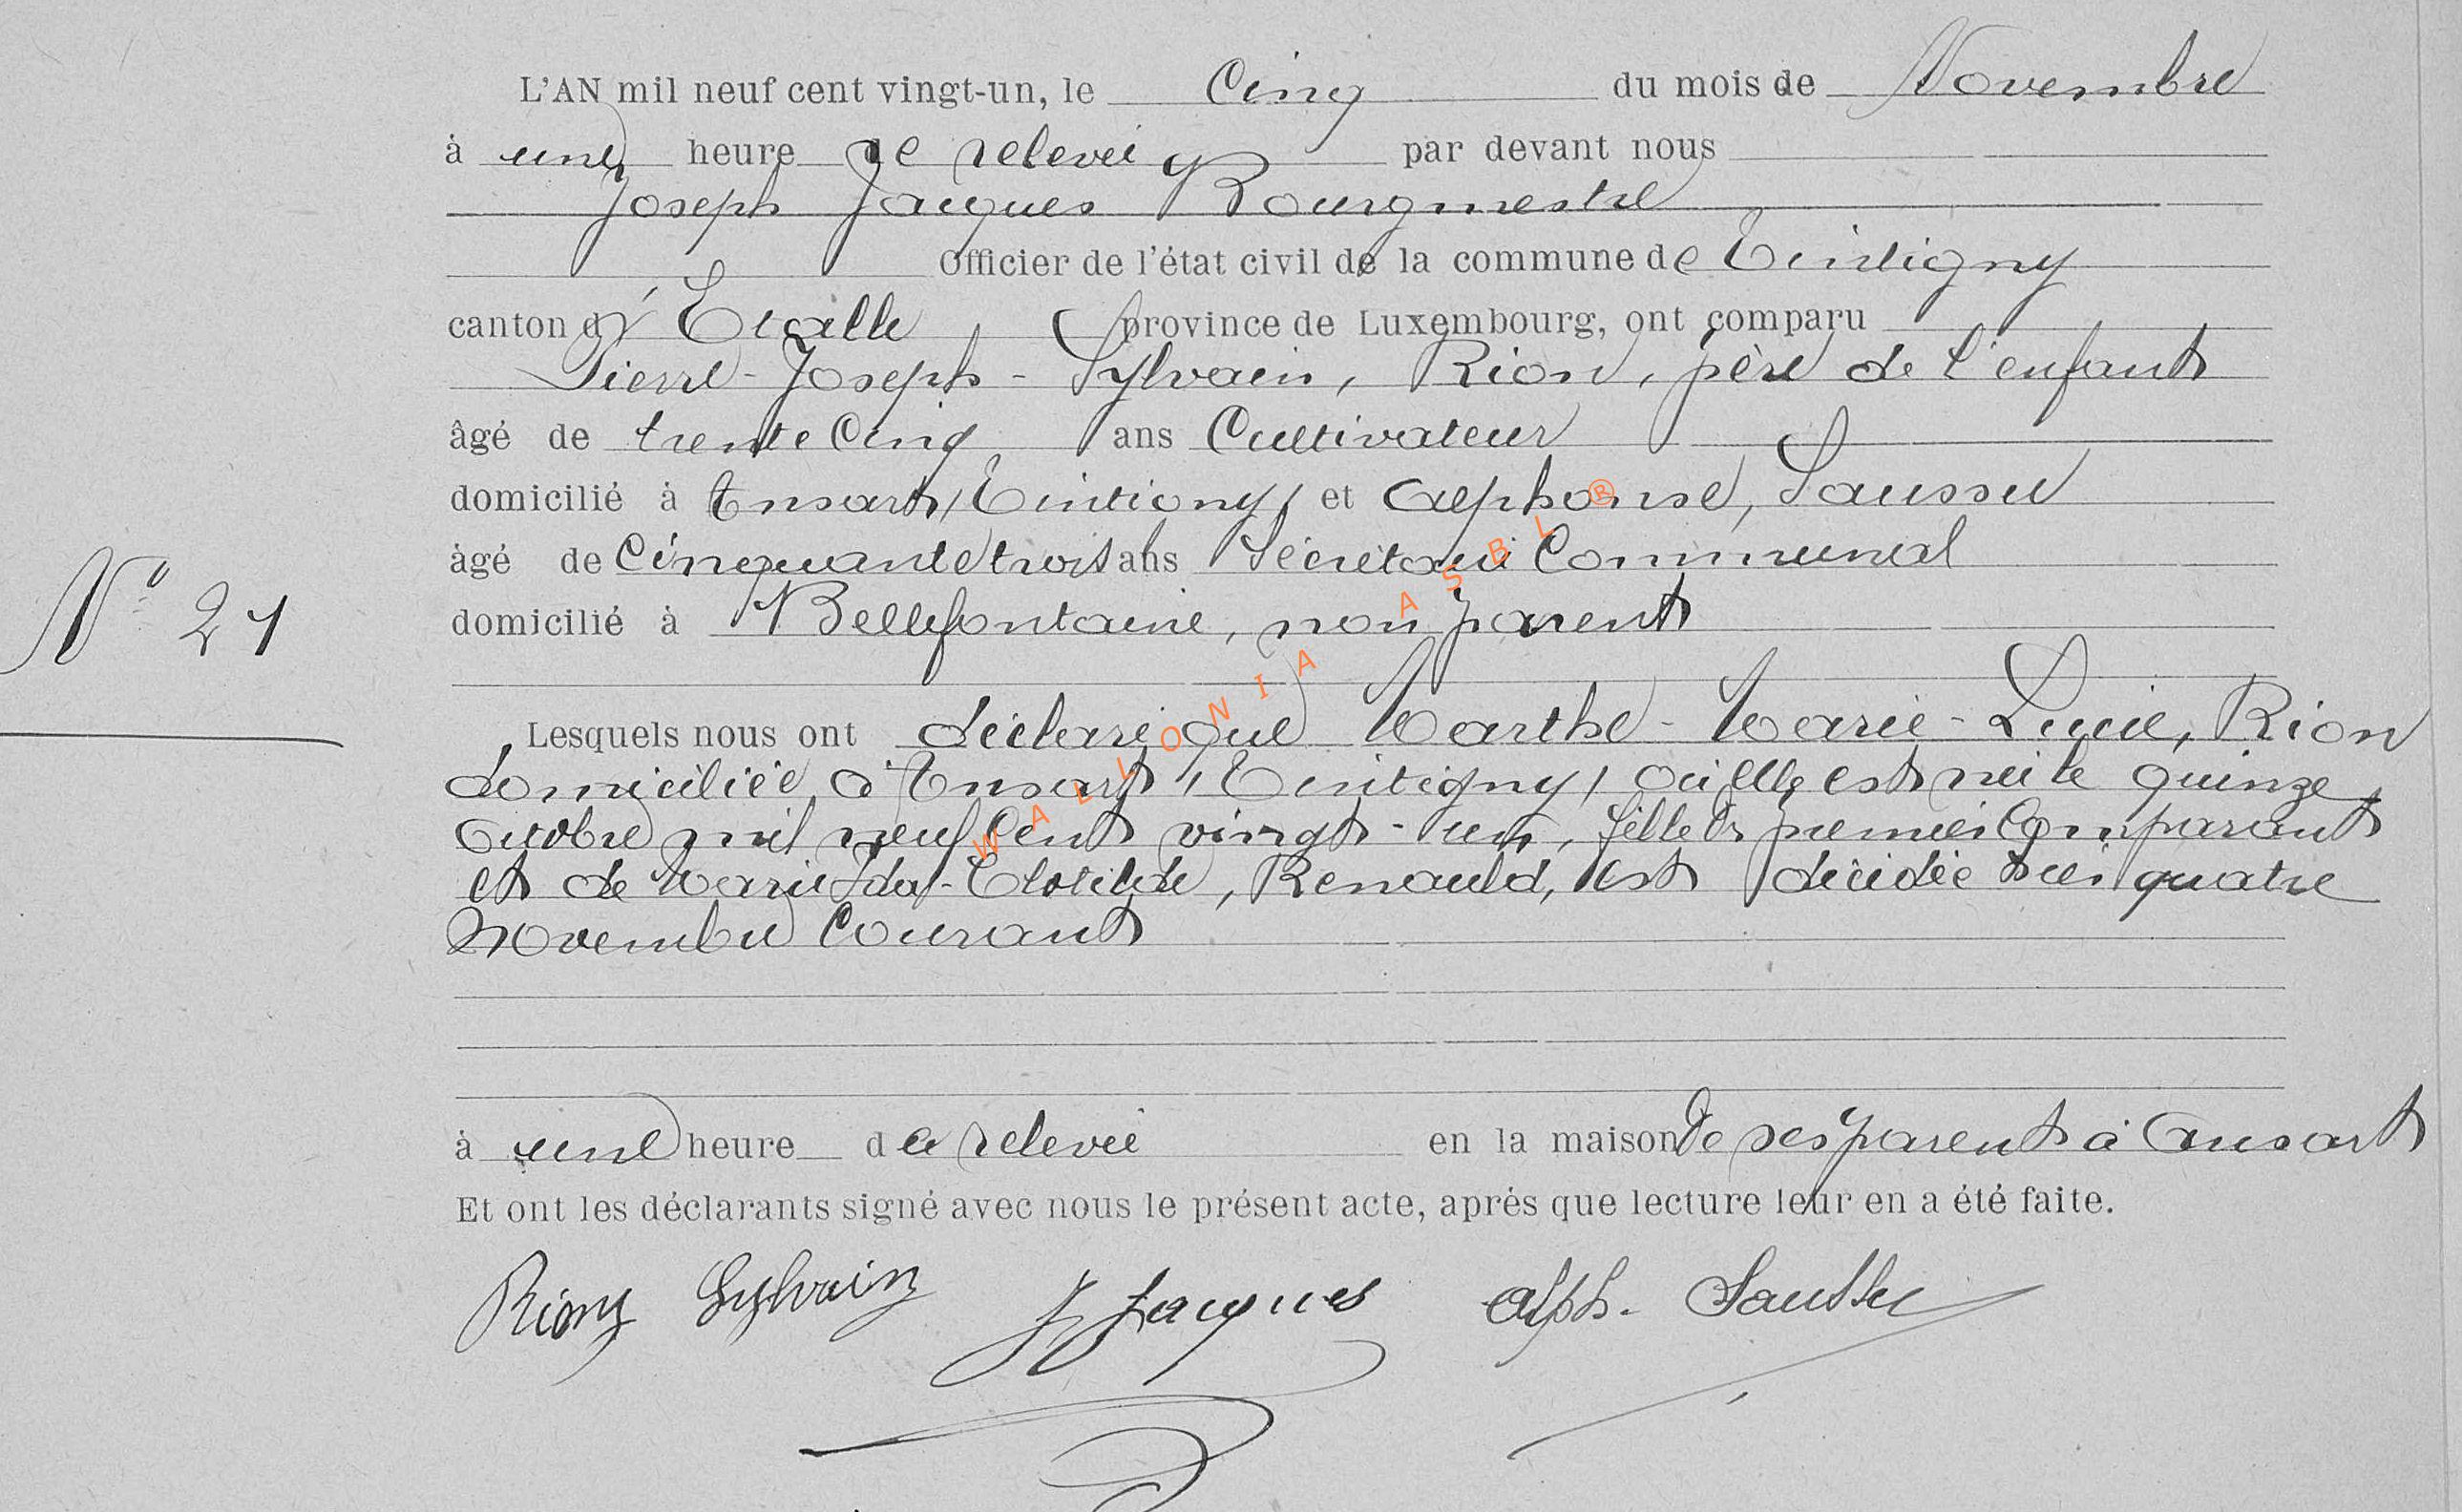 L'AN mil neuf cent vingt-un, le Cinq du mois de Novembre
à une heure de relevée par devant nous
Joseph Jacques Bourgmestre
Officier de l'état civil de la commune de Tintigny
canton d'Etalle province de Luxembourg, ont comparu
Pierre-Joseph-Sylvain, Rion, père de l'enfant
âgé de trente cinq ans Cultivateur
domicilié à Ansart /Tintigny/ et Alphonse, Saussu
âgé de Cinquante trois ans Secrétaire Communal
domicilié à Bellefontaine, non parent
N° 21
Lesquels nous ont déclaré que Marthe-Marie-Lucie, Rion
domiciliée à Ansart /Tintigny/ où elle est née le quinze
Octobre mil neuf Cent vingt-un, fille du premier Comparant
et de Marie Ida-Clotilde, Renauld, est décédée hier quatre
Novembre Courant
à une heure de relevée en la maison de ses parents à Ansart
Et ont les déclarants signé avec nous le présent acte, après que lecture leur en a été faite.
Rion Sylvain J Jacques Alph. Saussu
WALLONIA ASBL ®